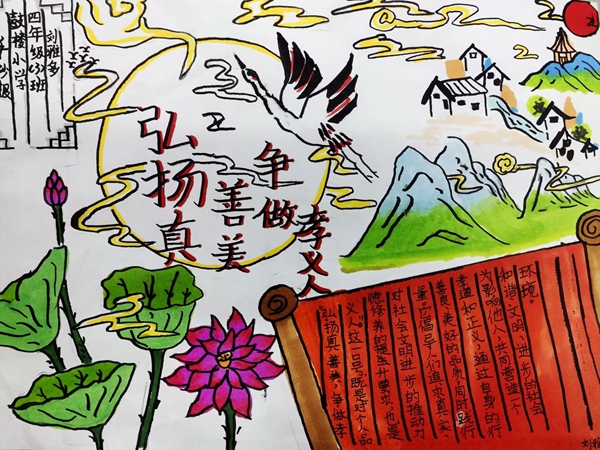 刘雅多
四年级(3)班
鼓楼小学
弘扬真
善美
争做
孝义人
弘扬真善美,争做孝
义人”这一口号,既是对个人品
德修养的提升要求,也是
对社会文明进步的推动力
量。它倡导人们追求真实、
善良、美好的品质,同时践行
孝道和正义,通过自身的行
为影响他人,共同营造一个
和谐、文明、进步的社会
环境。